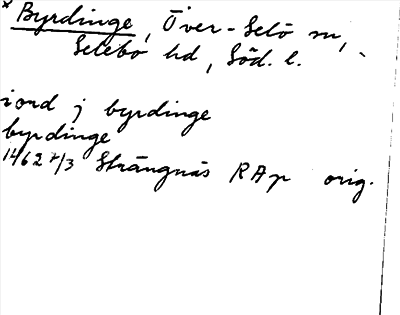 * Byrdinge, Över-Selö sn,
Selebo hd, Söd. l.
iord j byrdinge
byrdinge
1462 7/3 Strängnäs RAp orig.